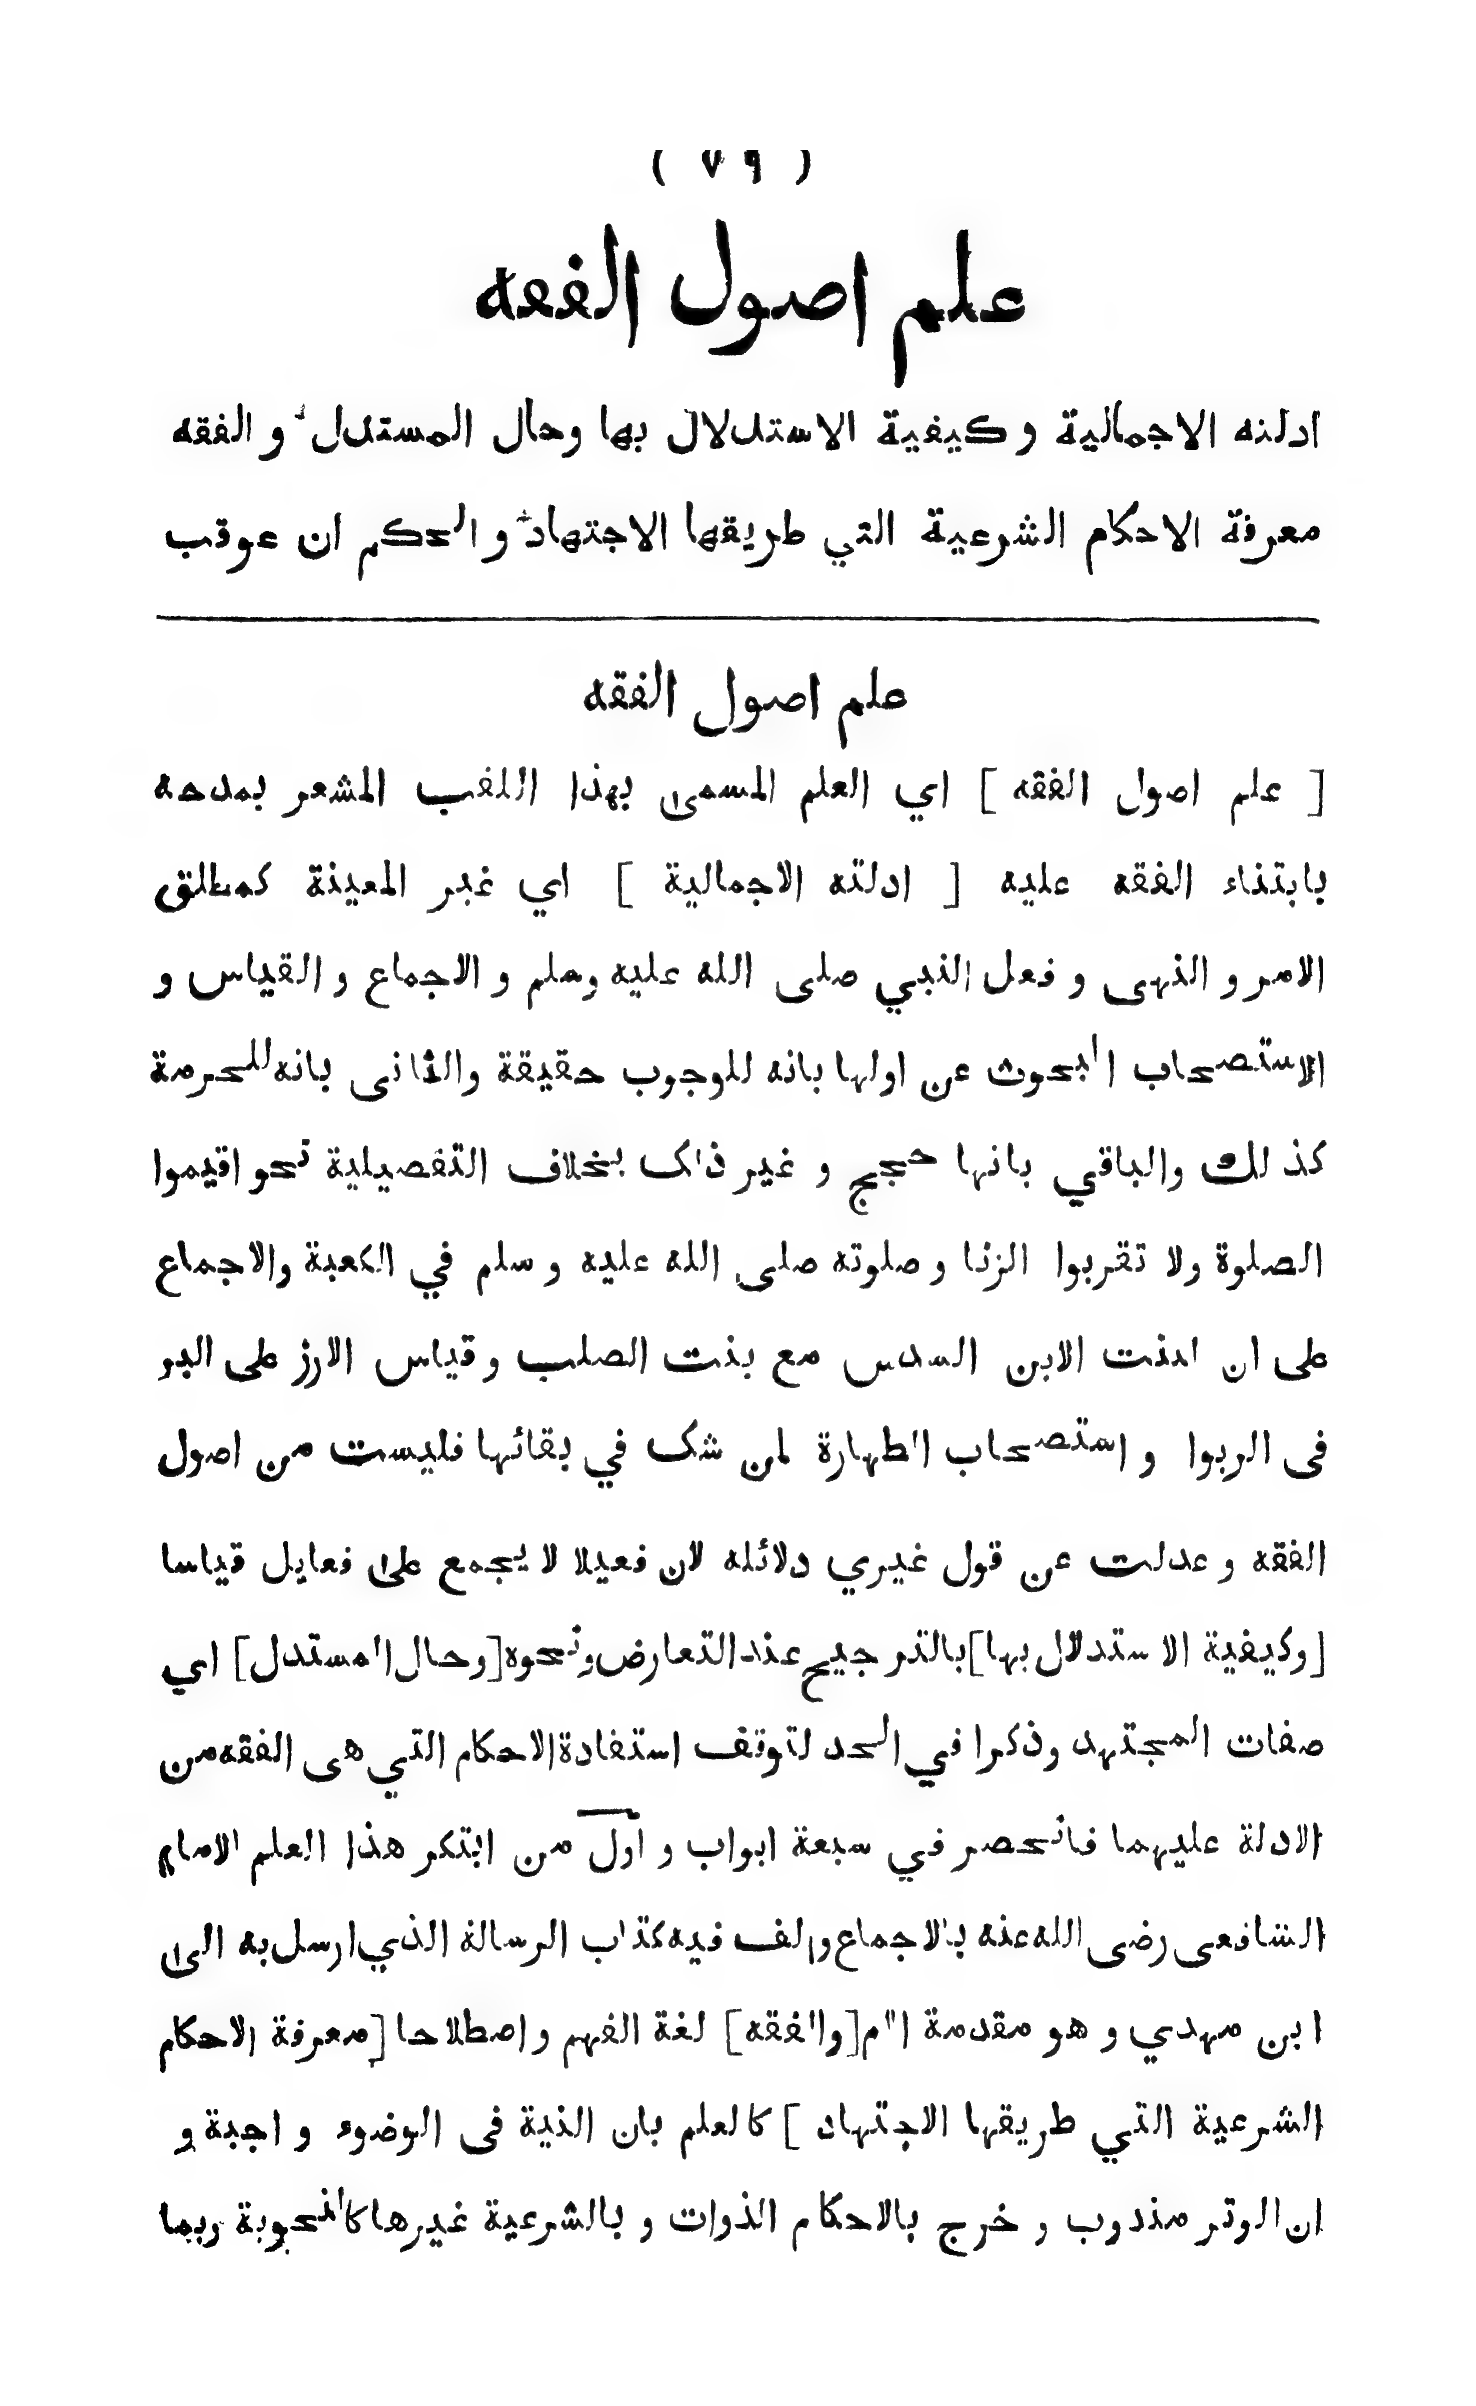 ( ٧٩ )
علم اصول الفقه
ادلته الاجمالية و كيفية الاستدلال بها وحال المستدل و الفقه
معرفة الاحكام الشرعية التي طريقها الاجتهاد و الحكم ان عوقب
علم اصول الفقه
[ علم اصول الفقه ] اي العلم المسمى بهذا اللقب المشعر بمدحه
بابتناء الفقه عليه [ ادلته الاجمالية ] اي غير المعينة كمطلق
الامر و النهى و فعل النبي صلى الله عليه وسلم و الاجماع و القياس و
الاستصحاب المبحوث عن اولها بانه للوجوب حقيقة والثانى بانه للحرمة
كذلك والباقي بانها حجج و غير ذلك بخلاف التفصيلية نحو اقيموا
الصلوة ولا تقربوا الزنا و صلوته صلى الله عليه و سلم في الكعبة والاجماع
على ان لبنت الابن السدس مع بنت الصلب و قياس الارز على البر
فى الربوا و استصحاب الطهارة لمن شك في بقائها فليست من اصول
الفقه و عدلت عن قول غيري دلائله لان فعيلا لا يجمع على فعايل قياسا
[وكيفية الاستدلال بها] بالترجيح عند التعارض ونحوه [وحال المستدل] اي
صفات المجتهد وذكرا في الحد لتوقف استفادة الاحكام التي هى الفقه من
الادلة عليهما فانحصر في سبعة ابواب و اول من ابتكر هذا العلم الامام
الشافعى رضى الله عنه بالاجماع والف فيه كتاب الرسالة الذي ارسل به الى
ابن مهدي و هو مقدمة الام [والفقه] لغة الفهم و اصطلاحا [معرفة الاحكام
الشرعية التي طريقها الاجتهاد ] كالعلم بان النية فى الوضوء و اجبة و
ان الوتر مندوب و خرج بالاحكام الذوات و بالشرعية غيرها كالنحوية ربما